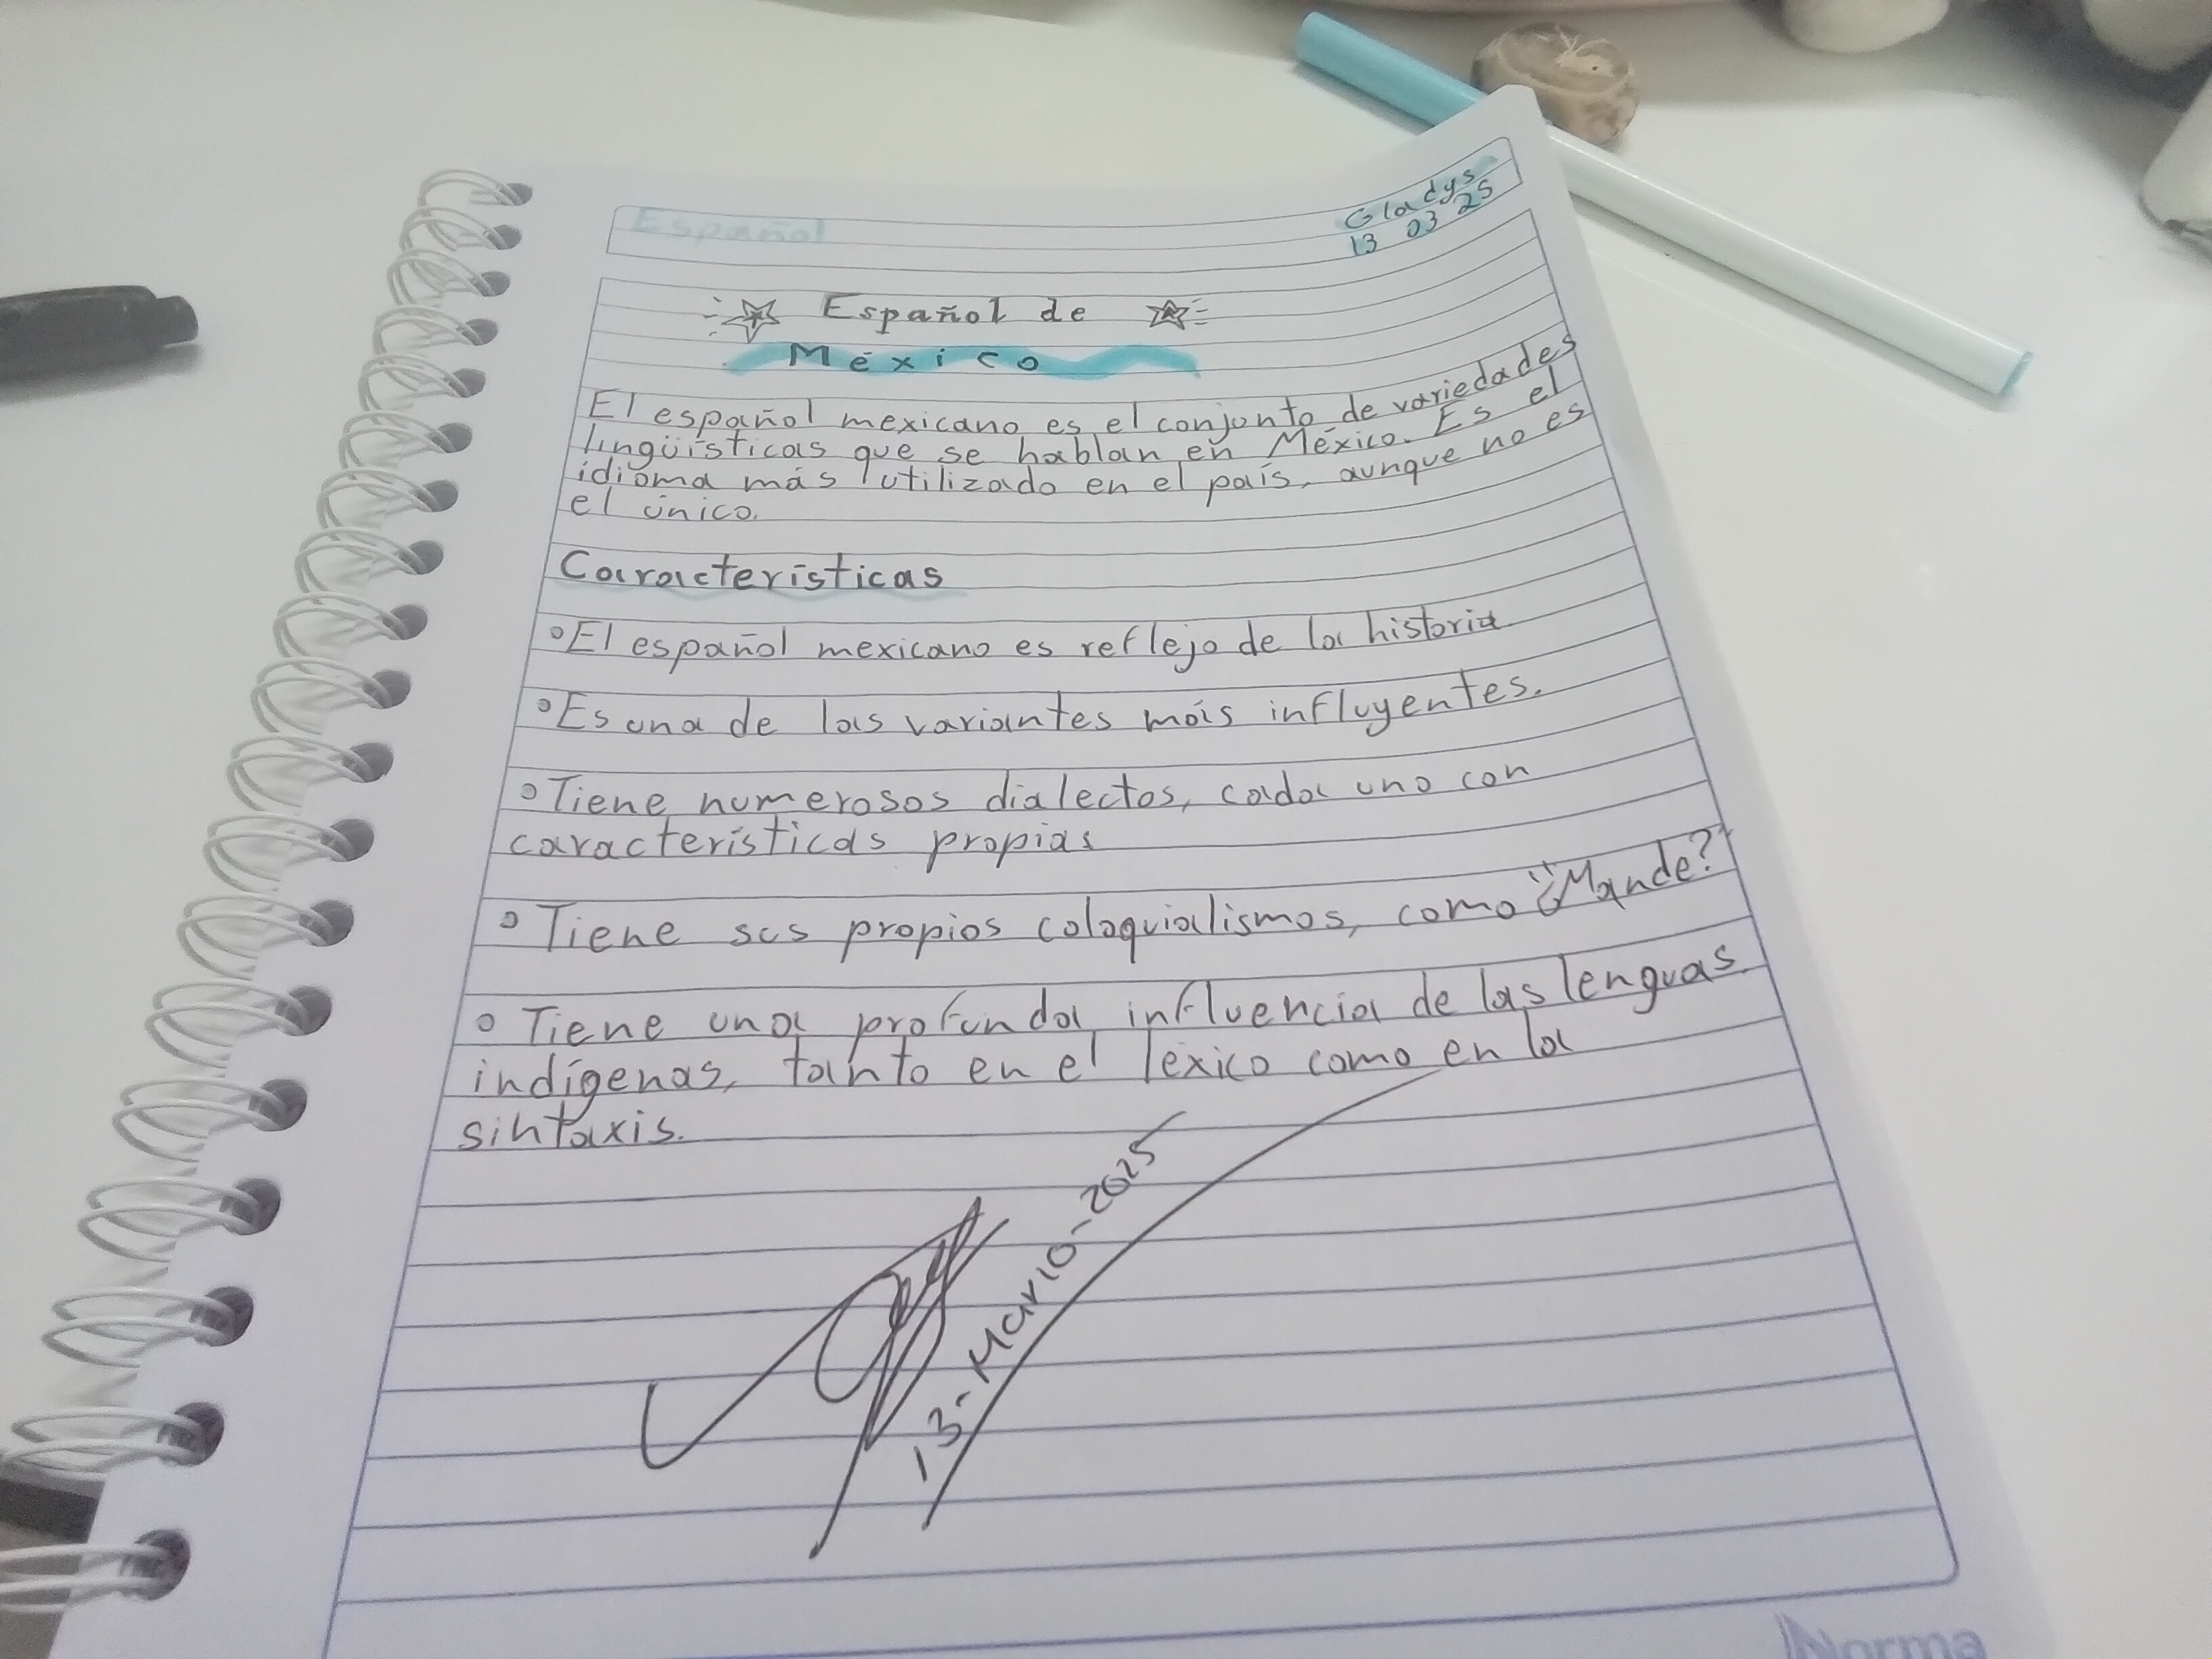 Español
Gladys
13 03 25
Español de
México
El español mexicano es el conjunto de variedades
lingüísticas que se hablan en México. Es el
idioma más utilizado en el país, aunque no es
el único.
Características
El español mexicano es reflejo de la historia
Es una de las variantes más influyentes.
Tiene numerosos dialectos, cada uno con
características propias
Tiene sus propios coloquialismos, como "¿Mande?"
Tiene una profunda influencia de las lenguas
indígenas, tanto en el léxico como en la
sintaxis.
13-Marzo-2025
Norma